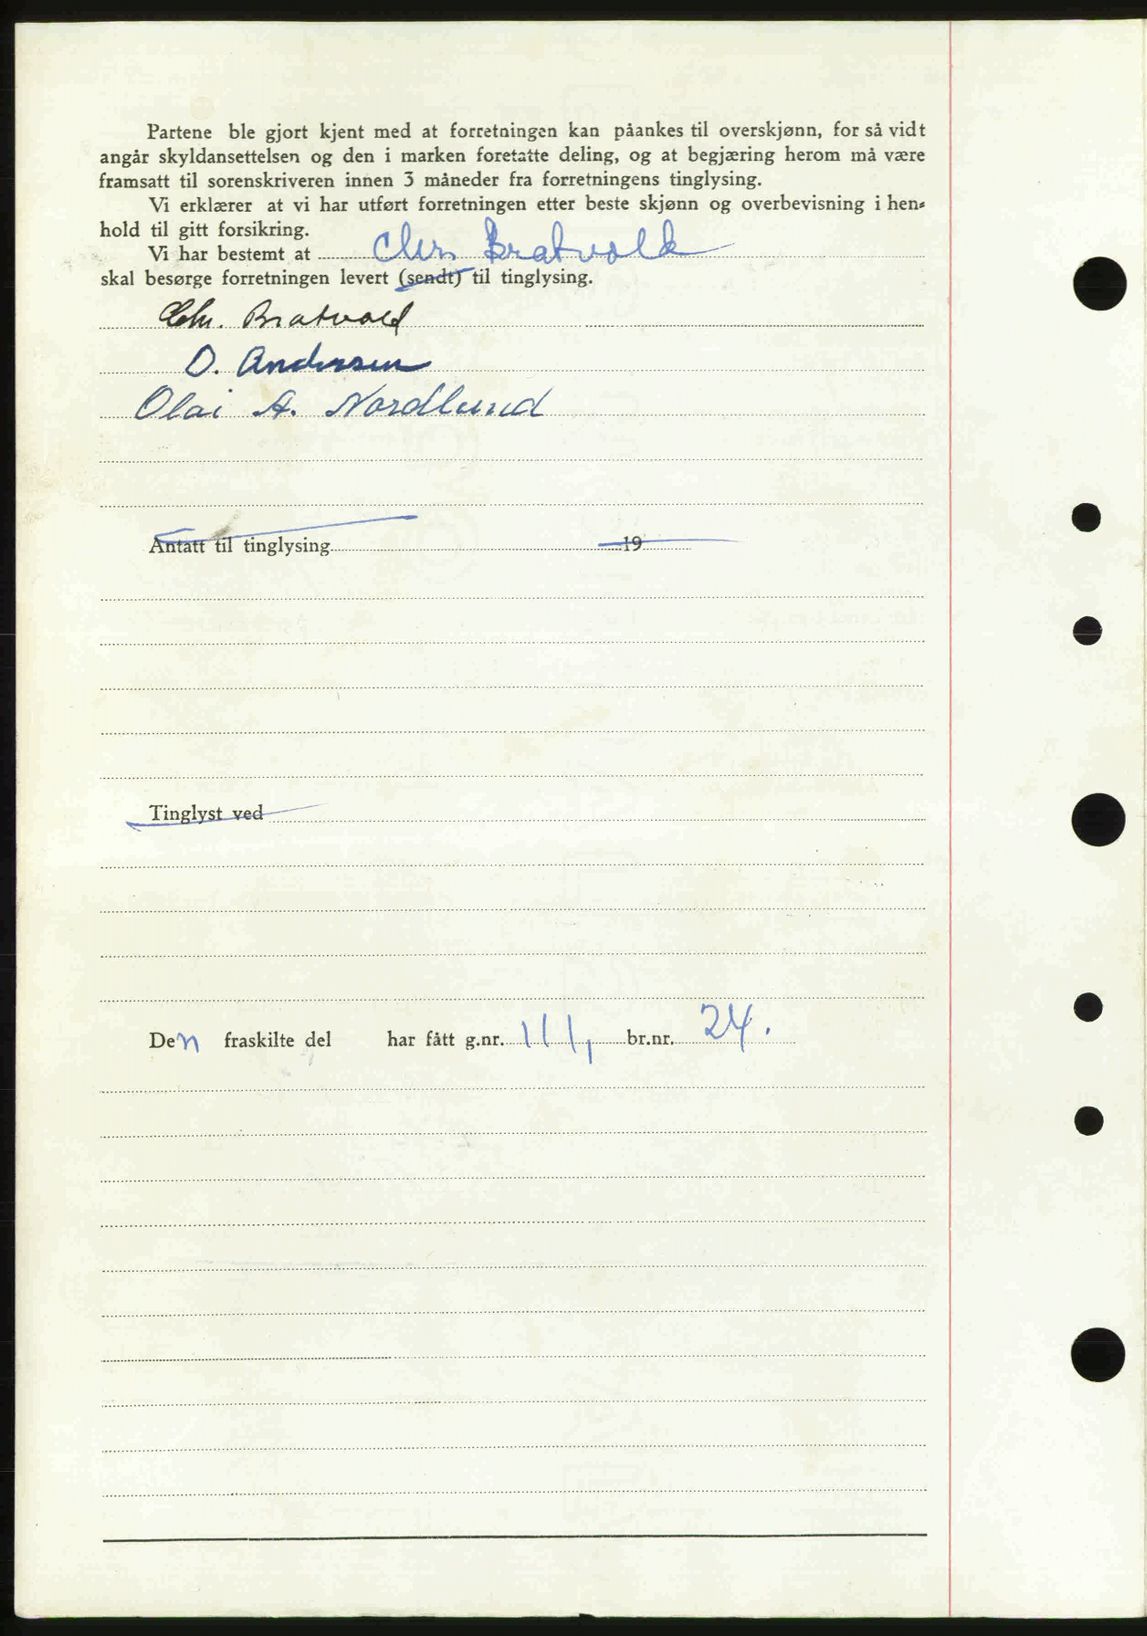 Partene ble gjort kjent med at forretningen kan påankes til overskjønn, for så vidt
angår skyldansettelsen og den i marken foretatte deling, og at begjæring herom må være
framsatt til sorenskriveren innen 3 måneder fra forretningens tinglysing.
Vi erklærer at vi har utført forretningen etter beste skjønn og overbevisning i hen-
hold til gitt forsikring.
Vi har bestemt at Chr. Bratvold
skal besørge forretningen levert (sendt) til tinglysing.
Chr. Bratvold
O. Andersen
Olai A. Nordlund
Antatt til tinglysing 19
Tinglyst ved
Den fraskilte del har fått g.nr. 111, br.nr. 24.